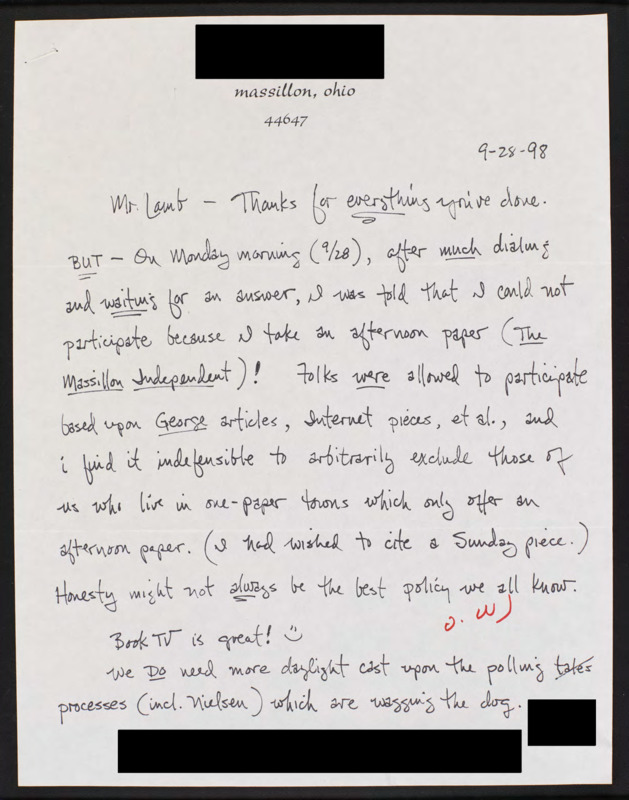 massillon, ohio
44647
9-28-98
Mr. Lamb — Thanks for everything you've done.
BUT — On Monday morning (9/28), after much dialing
and waiting for an answer, I was told that I could not
participate because I take an afternoon paper (The
Massillon Independent)! Folks were allowed to participate
based upon George articles, Internet pieces, et al., and
i find it indefensible to arbitrarily exclude those of
us who live in one-paper towns which only offer an
afternoon paper. (I had wished to cite a Sunday piece.)
Honesty might not always be the best policy we all know.
Book TV is great! ☺
We DO need more daylight cast upon the polling
processes (incl. Nielsen) which are wagging the dog.